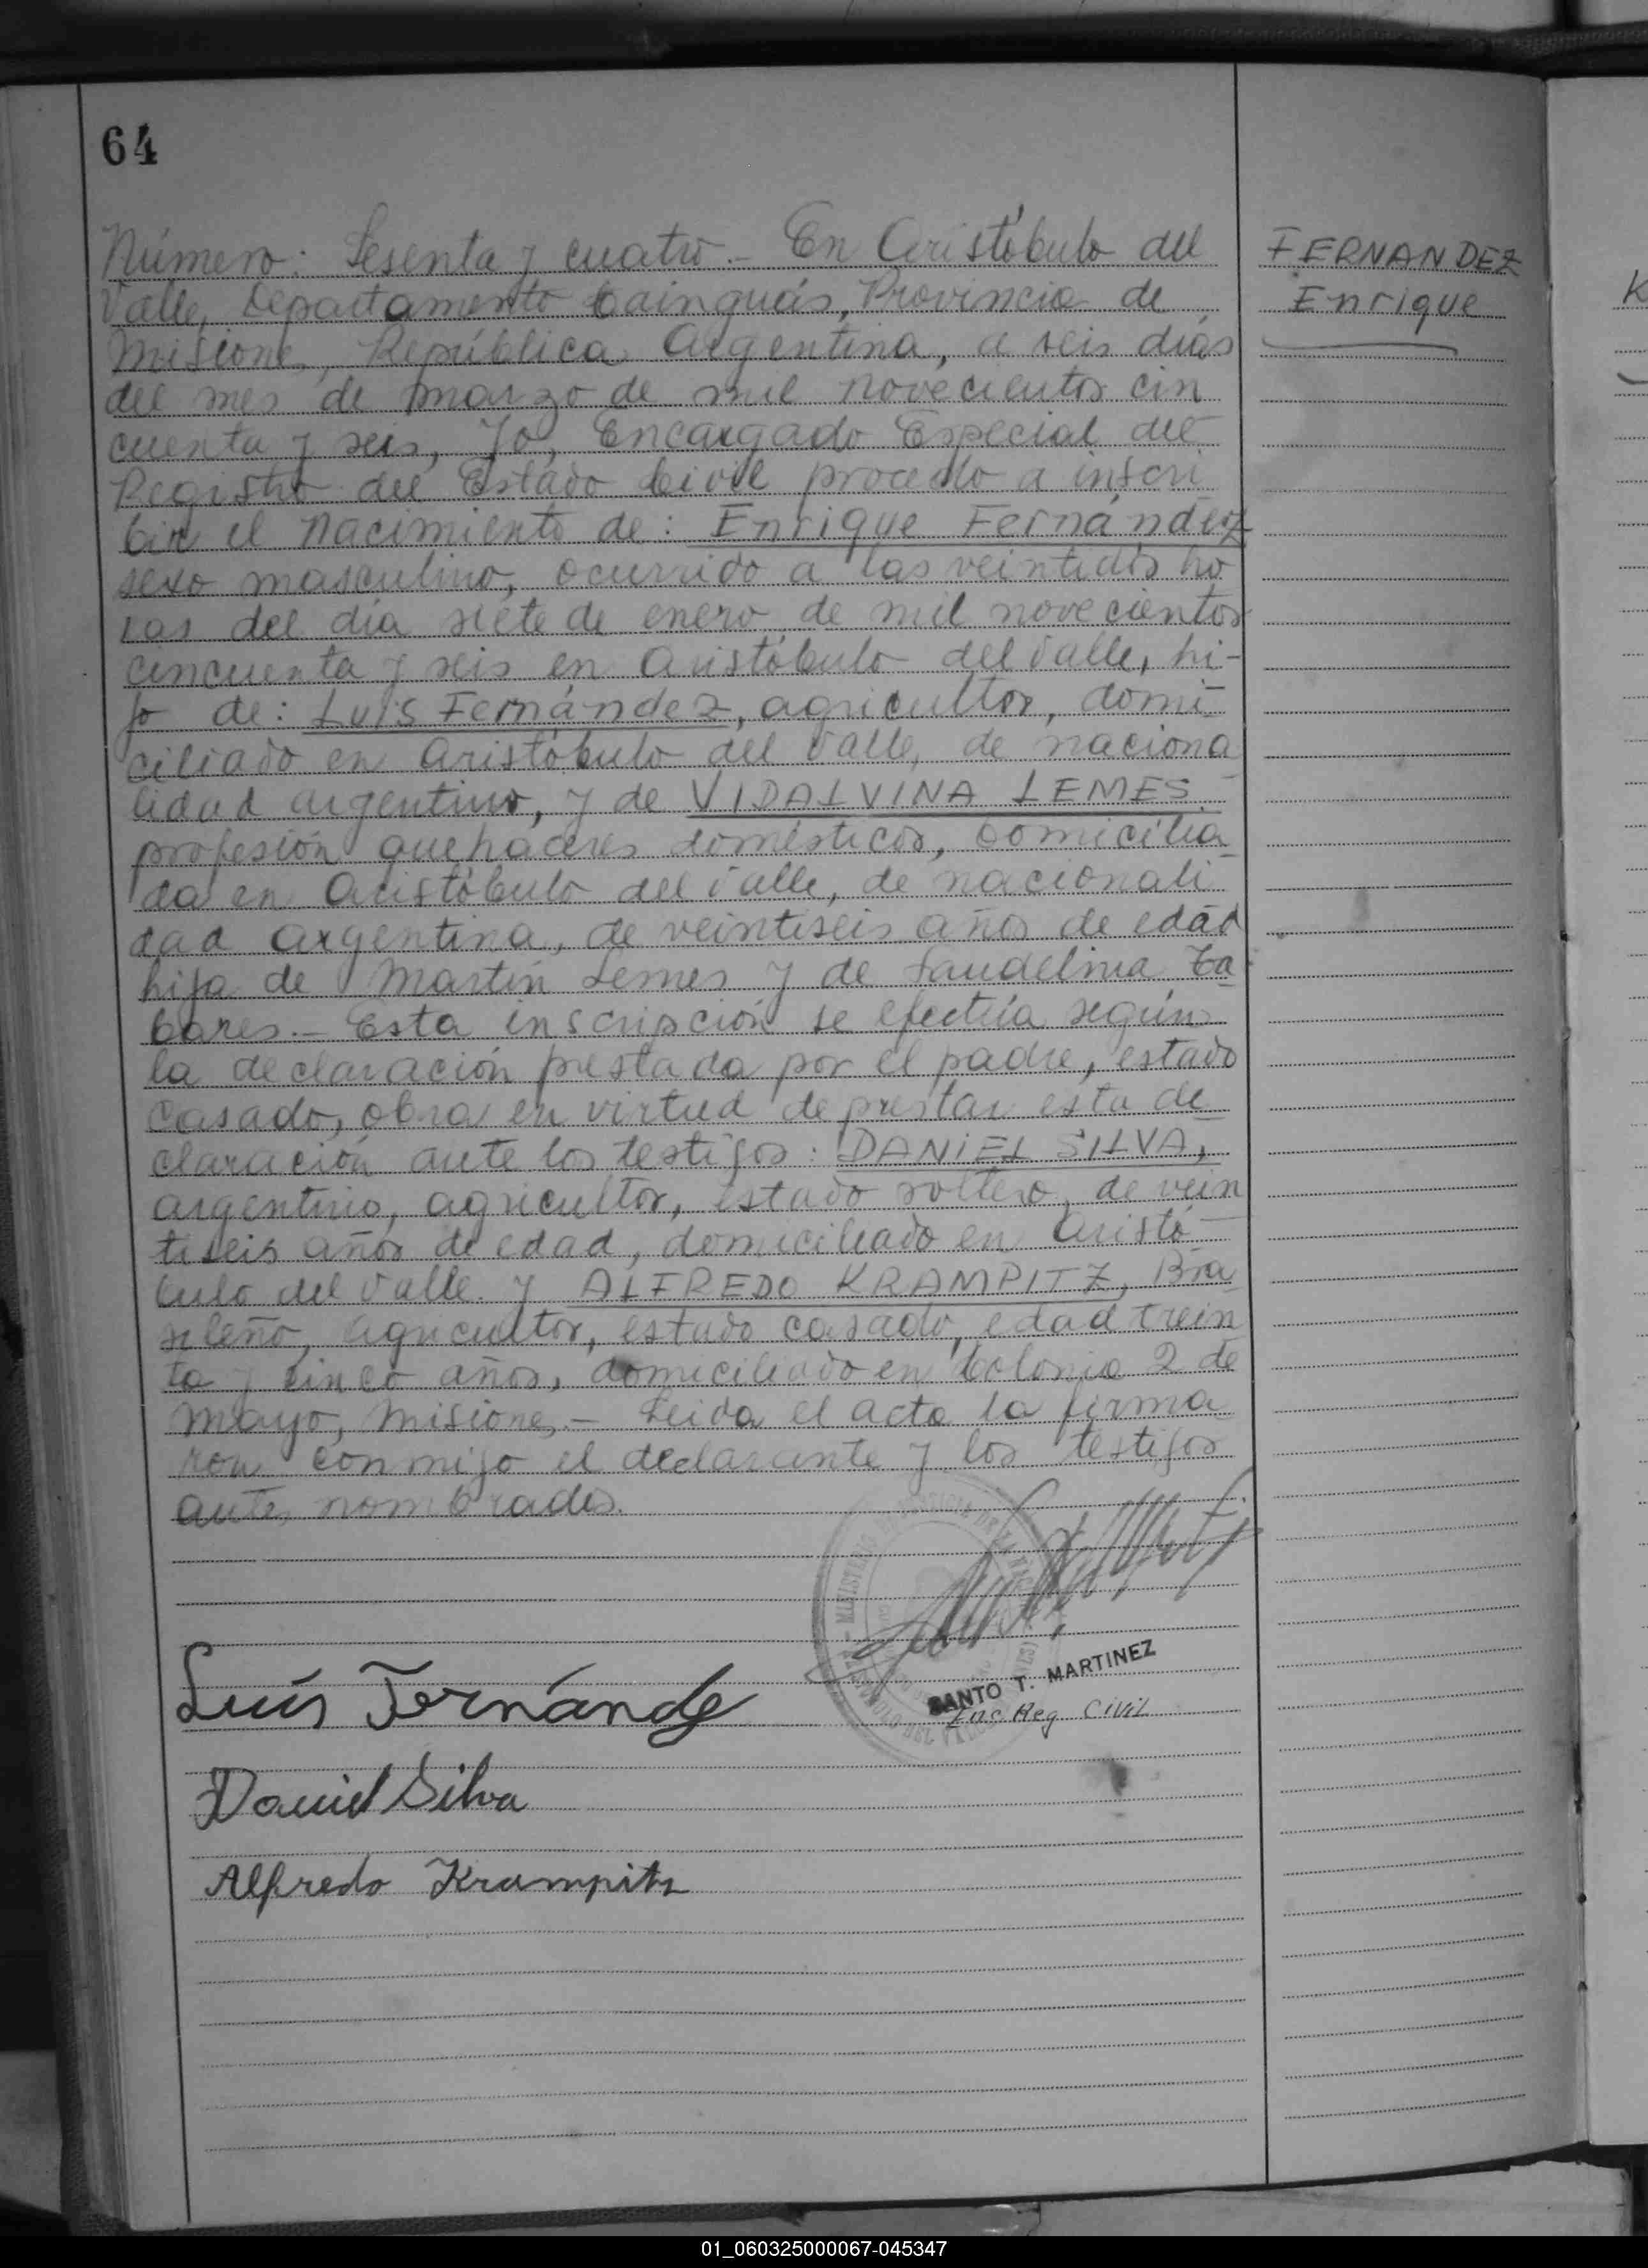 64
Número: Sesenta y cuatro.- En Aristóbulo del
Valle, Departamento Cainguás, Provincia de
Misiones, República Argentina, a seis días
del mes de marzo de mil novecientos cin
cuenta y seis, Yo, Encargado Especial del
Registro del Estado Civil procedo a inscri
bir el nacimiento de: Enrique Fernández
sexo masculino, ocurrido a las veintidós ho
ras del día siete de enero de mil novecientos
cincuenta y seis en Aristóbulo del Valle, hi-
jo de: Luis Fernández, agricultor, domi-
ciliado en Aristóbulo del Valle, de naciona
lidad argentino, y de VIDALVINA LEMES
profesión quehaceres domésticos, domicilia
da en Aristóbulo del Valle, de nacionali
dad argentina, de veintiseis años de edad
hija de Martín Lemes y de Laudelina Ta-
bares.- Esta inscripción se efectúa según
la declaración prestada por el padre, estado
casado, obra en virtud de prestar esta de
claración ante los testigos: DANIEL SILVA,
argentino, agricultor, estado soltero, de vein
tiseis años de edad, domiciliado en Aristó-
bulo del Valle. y ALFREDO KRAMPITZ, Bra
sileño, agricultor, estado casado, edad trein
ta y cinco años, domiciliado en Colonia 2 de
Mayo, Misiones.- Leida el acta la firma
ron conmigo el declarante y los testigos
antes nombrados.
SANTO T. MARTINEZ
Enc. Reg. Civil
Luis Fernández
Daniel Silva
Alfredo Krampitz
FERNANDEZ
Enrique
K
01_060325000067-045347